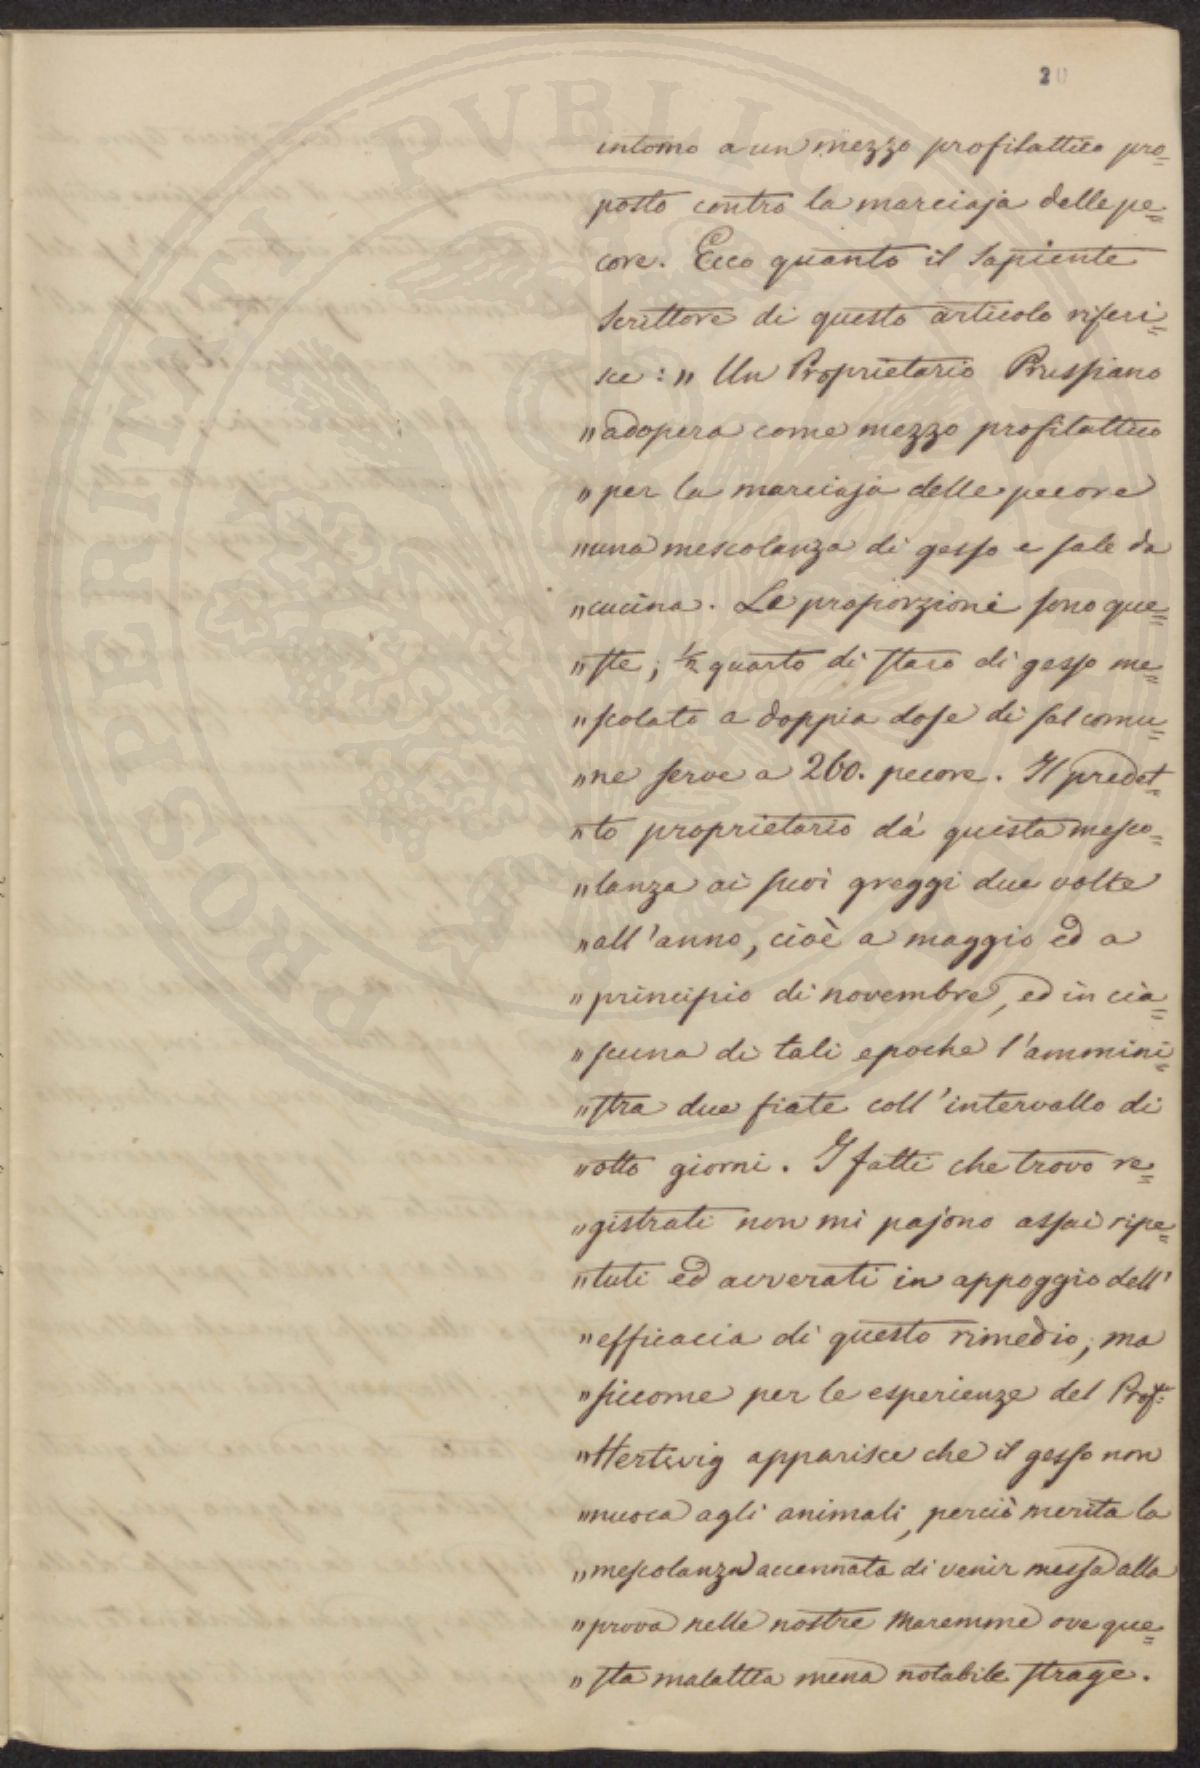 20
intorno a un mezzo profilattico pro=
posto contro la marciaja delle pe=
core. Ecco quanto il Sapiente
Scrittore di questo articolo riferi=
sce: „ Un Proprietario Prussiano
„ adopera come mezzo profilattico
„ per la marciaja delle pecore
„ una mescolanza di gesso e sale da
„ cucina. Le proporzioni sono que=
„ ste; 1/2 quarto di staro di gesso me=
„ scolato a doppia dose di sal comu=
„ ne serve a 260. pecore. Il predet=
„ to proprietario dá questa mesco=
„ lanza ai suoi greggi due volte
„ all'anno, cioè a maggio ed a
„ principio di novembre, ed in cia=
„ scuna di tali epoche l'ammini=
„ stra due fiate coll'intervallo di
„ otto giorni. I fatti che trovo re=
„ gistrati non mi pajono assai ripe=
„ tuti ed avverati in appoggio dell'
„ efficacia di questo rimedio, ma
„ siccome per le esperienze del Prof.re
„ Hertwig apparisce che il gesso non
„ nuoca agli animali, perciò merita la
„ mescolanza accennata di venir messa alla
„ prova nelle nostre Maremme ove que=
„ sta malattia mena notabile strage.
PROSPERITATI PVBLICAE AVGENDAE